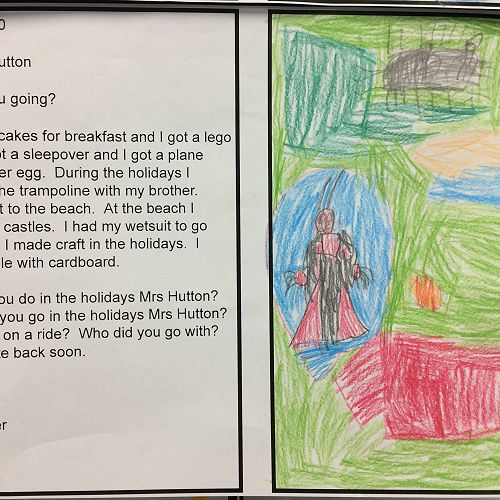 0
utton
u going?
cakes for breakfast and I got a lego
ot a sleepover and I got a plane
er egg. During the holidays I
he trampoline with my brother.
t to the beach. At the beach I
castles. I had my wetsuit to go
I made craft in the holidays. I
le with cardboard.
ou do in the holidays Mrs Hutton?
you go in the holidays Mrs Hutton?
on a ride? Who did you go with?
te back soon.
er